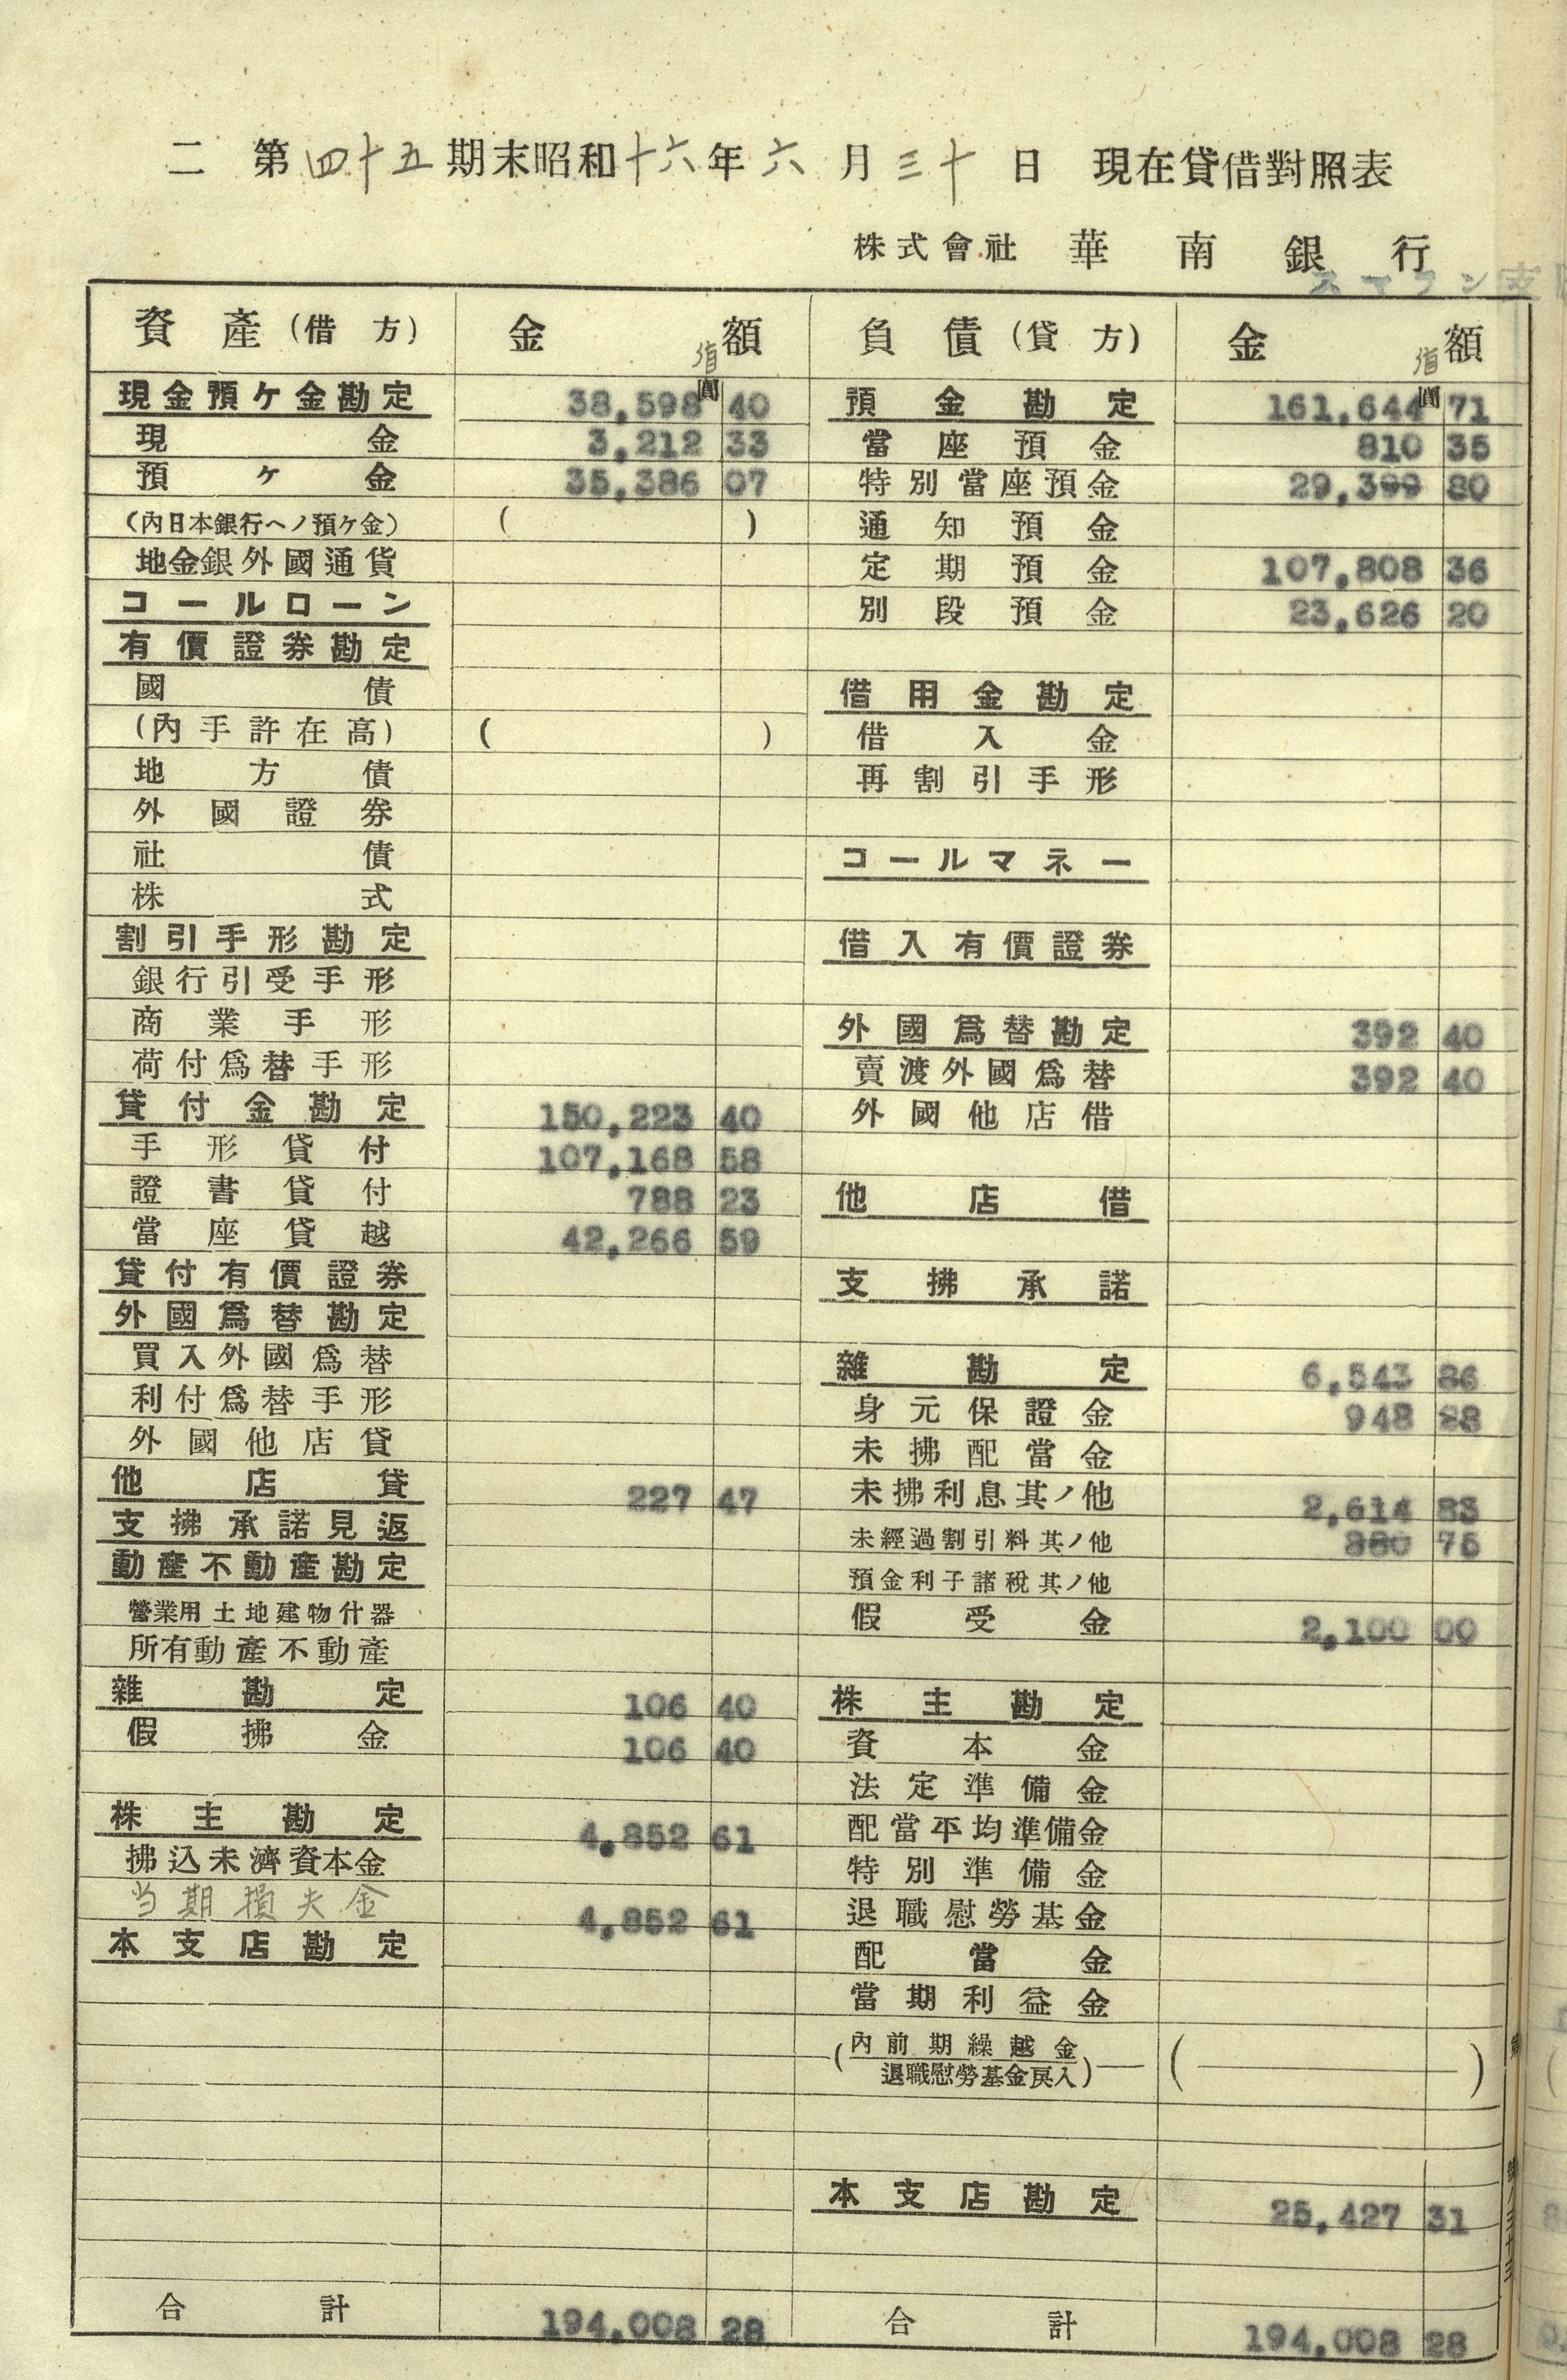 二 第四十五期末昭和十六年六月三十日 現在貸借對照表
株式會社 華南銀行
スマラン支
資産(借方) 金額 負債(貸方) 金額
現金預ケ金勘定 38,598 40 預金勘定 161,644 71
現金 3,212 33 當座預金 810 35
預ケ金 35,386 07 特別當座預金 29,399 80
(內日本銀行ヘノ預ケ金) ( ) 通知預金
地金銀外國通貨 定期預金 107,808 36
コールローン 別段預金 23,626 20
有價證券勘定
國債 借用金勘定
(內手許在高) ( ) 借入金
地方債 再割引手形
外國證券
社債 コールマネー
株式
割引手形勘定 借入有價證券
銀行引受手形
商業手形 外國爲替勘定 392 40
荷付爲替手形 賣渡外國爲替 392 40
貸付金勘定 150,223 40 外國他店借
手形貸付 107,168 58
證書貸付 788 23 他店借
當座貸越 42,266 59
貸付有價證券 支拂承諾
外國爲替勘定
買入外國爲替 雜勘定 6,543 86
利付爲替手形 身元保證金 948 28
外國他店貸 未拂配當金
他店貸 227 47 未拂利息其ノ他 2,614 83
支拂承諾見返 未經過割引料其ノ他 880 75
動產不動產勘定 預金利子諸稅其ノ他
營業用土地建物什器 假受金 2,100 00
所有動產不動產
雜勘定 106 40 株主勘定
假拂金 106 40 資本金
法定準備金
株主勘定 4,852 61 配當平均準備金
拂込未濟資本金 特別準備金
当期損失金 4,852 61 退職慰勞基金
本支店勘定 配當金
當期利益金
(內前期繰越金 ( )
退職慰勞基金戾入)
本支店勘定 25,427 31
合計 194,008 28 合計 194,008 28